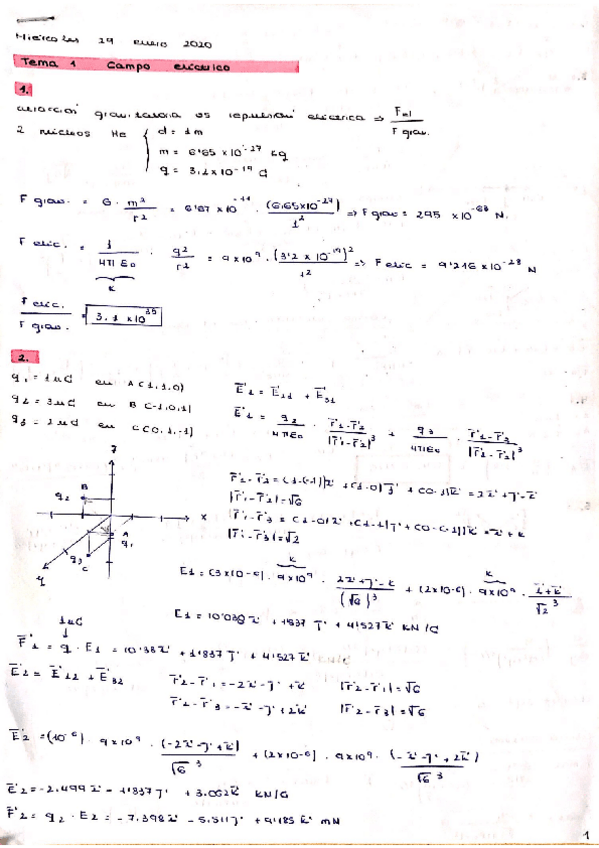 Miércoles 29 enero 2020
Tema 1 Campo eléctrico
1.
atracción gravitatoria vs repulsión eléctrica ⇒ Fel / F grav.
2 núcleos He { d = 1m
m = 6'65 × 10⁻²⁷ kg
q = 3.2 × 10⁻¹⁹ C
F grav. = G · m²/r² = 6'67 × 10⁻¹¹ · (6.65×10⁻²⁷)/1² ⇒ F grav = 2.95 × 10⁻⁶³ N.
F elec. = 1/4πε₀ · q²/r² = 9×10⁹ · (3'2 × 10⁻¹⁹)²/1² ⇒ F elec = 9'216 × 10⁻²⁸ N
K
F elec. / F grav. = 3.1 × 10³⁵
2.
q₁ = 1μC en A(1,1,0)
q₂ = 3μC en B(-1,0,1)
q₃ = 2μC en C(0,1,-1)
E⃗₁ = E⃗₂₁ + E⃗₃₁
E⃗₁ = q₂/4πε₀ · r⃗₁-r⃗₂/|r⃗₁-r⃗₂|³ + q₃/4πε₀ · r⃗₁-r⃗₃/|r⃗₁-r⃗₃|³
z
B
q₂
x
A
q₁
q₃
C
y
r⃗₁-r⃗₂ = (1-(-1))i⃗ + (1-0)j⃗ + (0-1)k⃗ = 2i⃗+j⃗-k⃗
|r⃗₁-r⃗₂| = √6
r⃗₁-r⃗₃ = (1-0)i⃗ + (1-1)j⃗ + (0-(-1))k⃗ = i⃗+k⃗
|r⃗₁-r⃗₃| = √2
K K
E₁ = (3×10-6) · 9×10⁹ · 2i⃗+j⃗-k⃗/(√6)³ + (2×10-6) · 9×10⁹ · i⃗+k⃗/√2³
E₁ = 10'038 i⃗ + 1'837 j⃗ + 4'527 k⃗ KN/C
1μC
F⃗₁ = q · E₁ = 10'38 i⃗ + 1'837 j⃗ + 4'527 k⃗
E⃗₂ = E⃗₁₂ + E⃗₃₂
r⃗₂-r⃗₁ = -2i⃗-j⃗+k⃗ |r⃗₂-r⃗₁| = √6
r⃗₂-r⃗₃ = -i⃗-j⃗+2k⃗ |r⃗₂-r⃗₃| = √6
E⃗₂ = (10⁻⁶) · 9×10⁹ · (-2i⃗-j⃗+k⃗)/√6³ + (2×10-6) · 9×10⁹ · (-i⃗-j⃗+2k⃗)/√6³
E⃗₂ = -2.499 i⃗ - 1'837 j⃗ + 3.062 k⃗ KN/C
F⃗₂ = q₂ · E₂ = -7.398 i⃗ - 5.511 j⃗ + 9'185 k⃗ mN
1